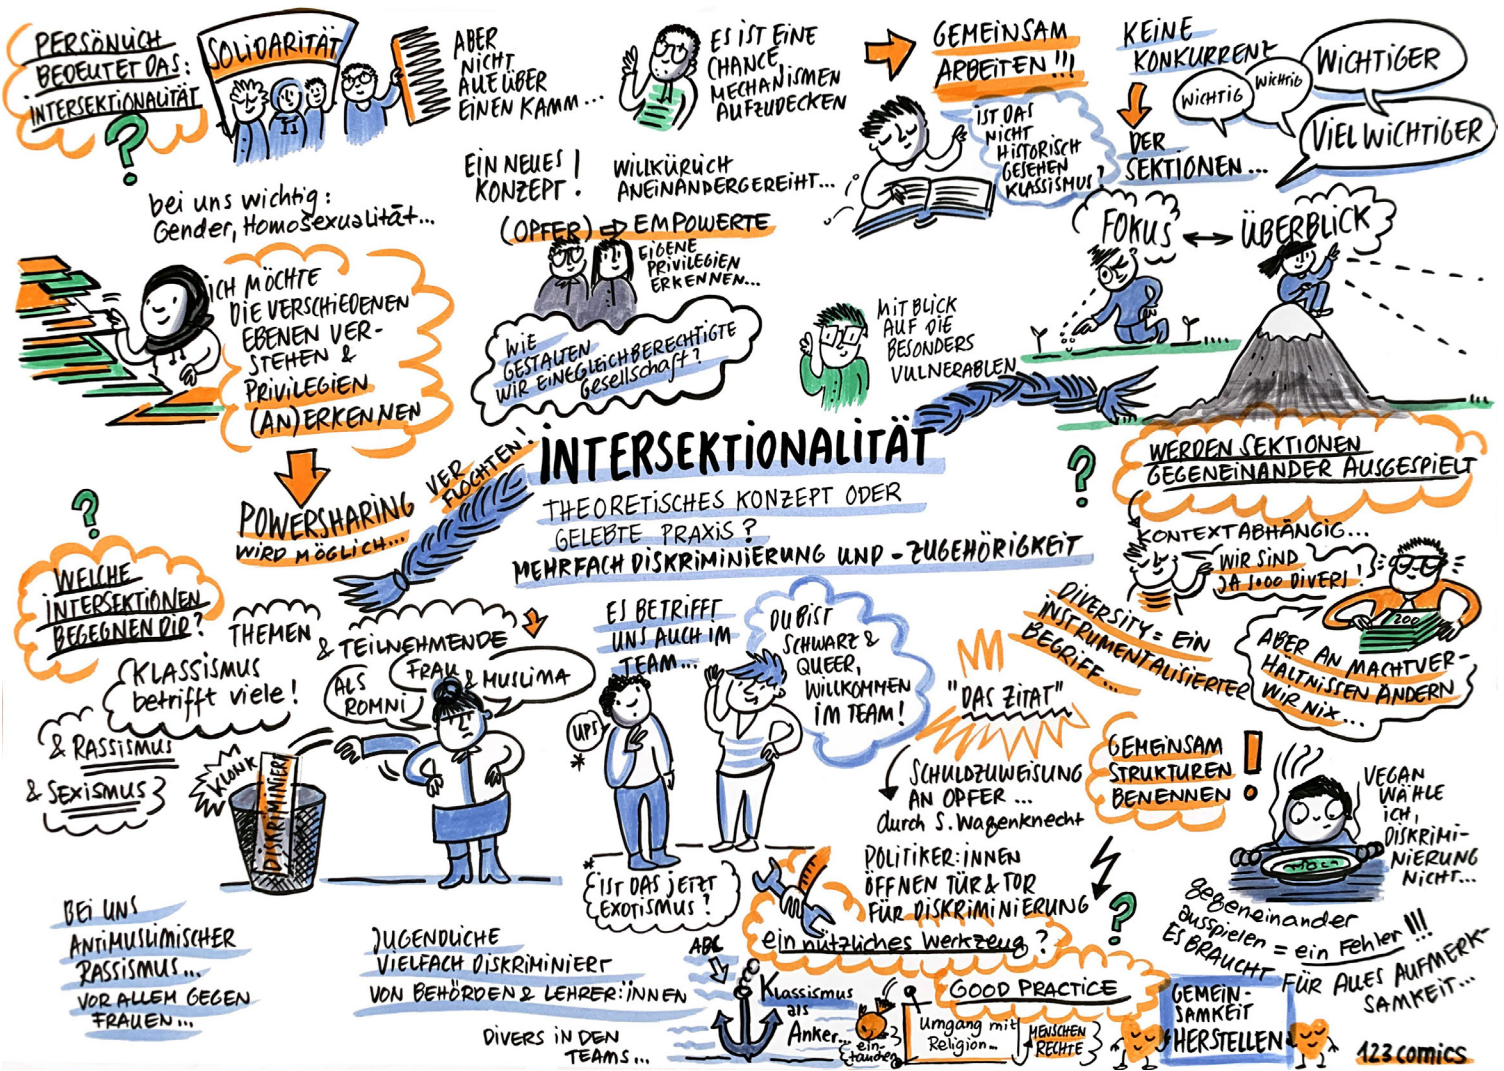 PERSÖNLICH
BEDEUTET DAS:
INTERSEKTIONALITÄT
?
SOLIDARITÄT
ABER
NICHT
ALLE ÜBER
EINEN KAMM...
ES IST EINE
CHANCE,
MECHANISMEN
AUFZUDECKEN
GEMEINSAM
ARBEITEN!!!
KEINE
KONKURRENZ
DER
SEKTIONEN...
WICHTIG
WICHTIG
WICHTIGER
VIEL WICHTIGER
IST DAS
NICHT
HISTORISCH
GESEHEN
KLASSISMUS?
bei uns wichtig:
Gender, Homosexualität...
EIN NEUES
KONZEPT!
WILLKÜRLICH
ANEINANDERGEREIHT...
(OPFER) ⇨ EMPOWERTE
EIGENE
PRIVILEGIEN
ERKENNEN...
FOKUS ↔ ÜBERBLICK
ICH MÖCHTE
DIE VERSCHIEDENEN
EBENEN VER-
STEHEN &
PRIVILEGIEN
(AN)ERKENNEN
WIE
GESTALTEN
WIR EINE GLEICHBERECHTIGTE
Gesellschaft?
MIT BLICK
AUF DIE
BESONDERS
VULNERABLEN
POWERSHARING
WIRD MÖGLICH...
VER
FLOCHTEN!
INTERSEKTIONALITÄT
THEORETISCHES KONZEPT ODER
GELEBTE PRAXIS?
MEHRFACHDISKRIMINIERUNG UND -ZUGEHÖRIGKEIT
?
WERDEN SEKTIONEN
GEGENEINANDER AUSGESPIELT
KONTEXTABHÄNGIG...
WIR SIND
JA SOOO DIVERS!
200
ABER AN MACHTVER-
HÄLTNISSEN ÄNDERN
WIR NIX...
DIVERSITY = EIN
INSTRUMENTALISIERTER
BEGRIFF...
?
WELCHE
INTERSEKTIONEN
BEGEGNEN DIR?
THEMEN
& TEILNEHMENDE
KLASSISMUS
betrifft viele!
& RASSISMUS
& SEXISMUS
ALS
ROMNI
FRAU
& MUSLIMA
KLONK
DISKRIMINIERT
ES BETRIFFT
UNS AUCH IM
TEAM...
UPS
*
DU BIST
SCHWARZ &
QUEER,
WILLKOMMEN
IM TEAM!
* IST DAS JETZT
EXOTISMUS?
"DAS ZITAT"
SCHULDZUWEISUNG
AN OPFER...
durch S. Wagenknecht
POLITIKER:INNEN
ÖFFNEN TÜR & TOR
FÜR DISKRIMINIERUNG
GEMEINSAM
STRUKTUREN
BENENNEN !
VEGAN
WÄHLE
ICH,
DISKRIMI-
NIERUNG
NICHT...
gegeneinander
ausspielen = ein Fehler!!!
ES BRAUCHT FÜR ALLES AUFMERK-
SAMKEIT...
BEI UNS
ANTIMUSLIMISCHER
RASSISMUS...
VOR ALLEM GEGEN
FRAUEN...
JUGENDLICHE
VIELFACH DISKRIMINIERT
VON BEHÖRDEN & LEHRER:INNEN
DIVERS IN DEN
TEAMS...
ein nützliches Werkzeug?
?
ABC
Klassismus
als
Anker...
ein-
tauchen
GOOD PRACTICE
Umgang mit
Religion...
MENSCHEN
RECHTE
GEMEIN-
SAMKEIT
HERSTELLEN
123comics